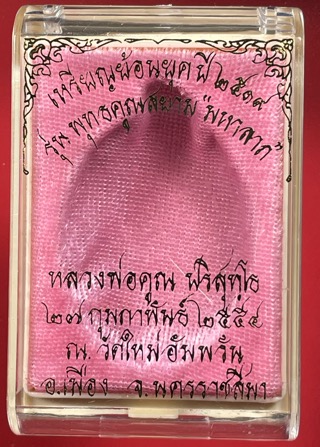 เหรียญย้อนยุค ปี ๒๕๓๙
รุ่น พุทธคุณสยาม "มหาลาภ"
หลวงพ่อคูณ ปริสุทโธ
๒๗ กุมภาพันธ์ ๒๕๕๔
ณ. วัดใหม่อัมพวัน
อ.เมือง จ.นครราชสีมา